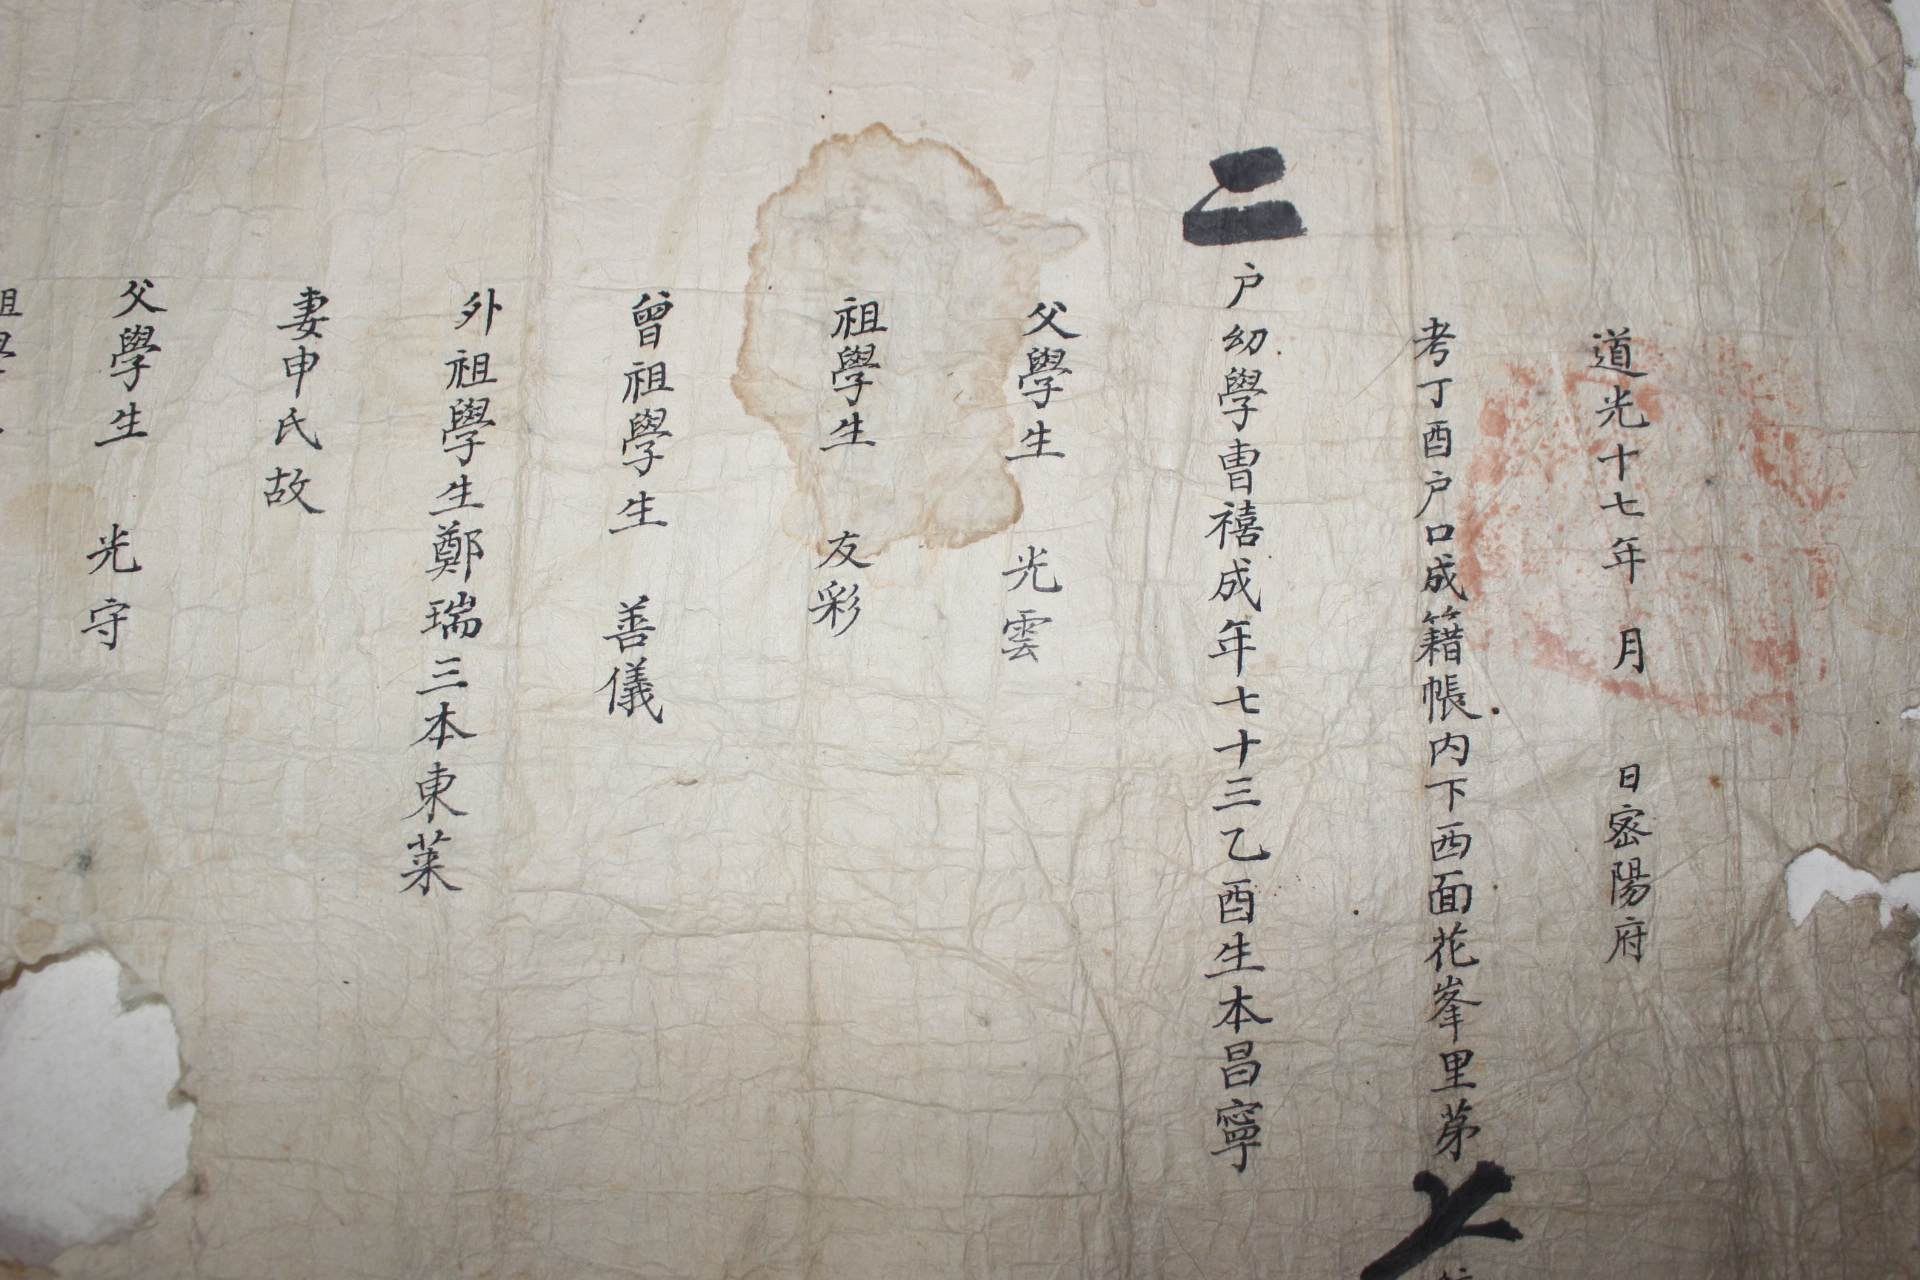 道光十七年 月 日密陽府
考丁酉戶口成籍帳内下西面花峯里苐
二
戶幼學曺禧成年七十三乙酉生本昌寧
父學生 光雲
祖學生 友彩
曾祖學生 善儀
外祖學生鄭瑞三本東萊
妻申氏故
父學生 光守